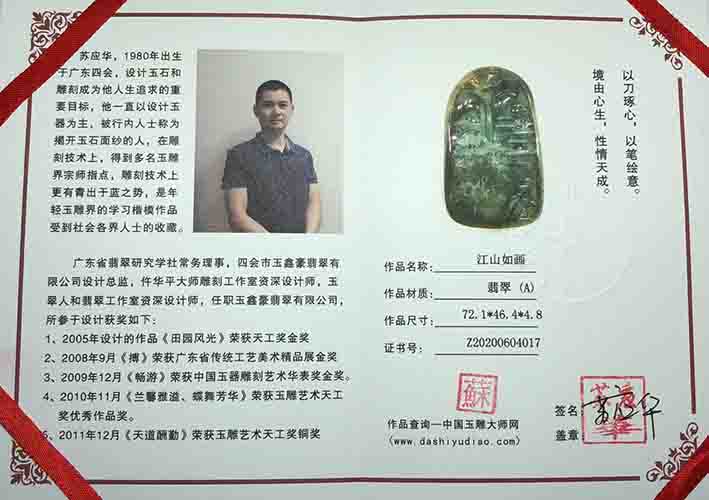 苏应华，1980年出生
于广东四会，设计玉石和
雕刻成为他人生追求的重
要目标，他一直以设计玉
器为主，被行内人士称为
揭开玉石面纱的人，在雕
刻技术上，得到多名玉雕
界宗师指点，雕刻技术上
更有青出于蓝之势，是年
轻玉雕界的学习楷模作品
受到社会各界人士的收藏。
广东省翡翠研究学社常务理事，四会市玉鑫豪翡翠有
限公司设计总监，仵华平大师雕刻工作室资深设计师，玉
翠人和翡翠工作室资深设计师，任职玉鑫豪翡翠有限公司，
所参于设计获奖如下：
1、2005年设计的作品《田园风光》荣获天工奖金奖
2、2008年9月《搏》荣获广东省传统工艺美术精品展金奖
3、2009年12月《畅游》荣获中国玉器雕刻艺术华表奖金奖。
4、2010年11月《兰馨雅溢、蝶舞芳华》荣获玉雕艺术天工
奖优秀作品奖。
5、2011年12月《天道酬勤》荣获玉雕艺术天工奖铜奖
以刀琢心，以笔绘意。
境由心生，性情天成。
作品名称：江山如画
作品材质：翡翠（A）
作品尺寸：72.1*46.4*4.8
证书号：Z20200604017
蘇
作品查询—中国玉雕大师网
(www.dashiyudiao.com)
签名：苏应华
盖章：